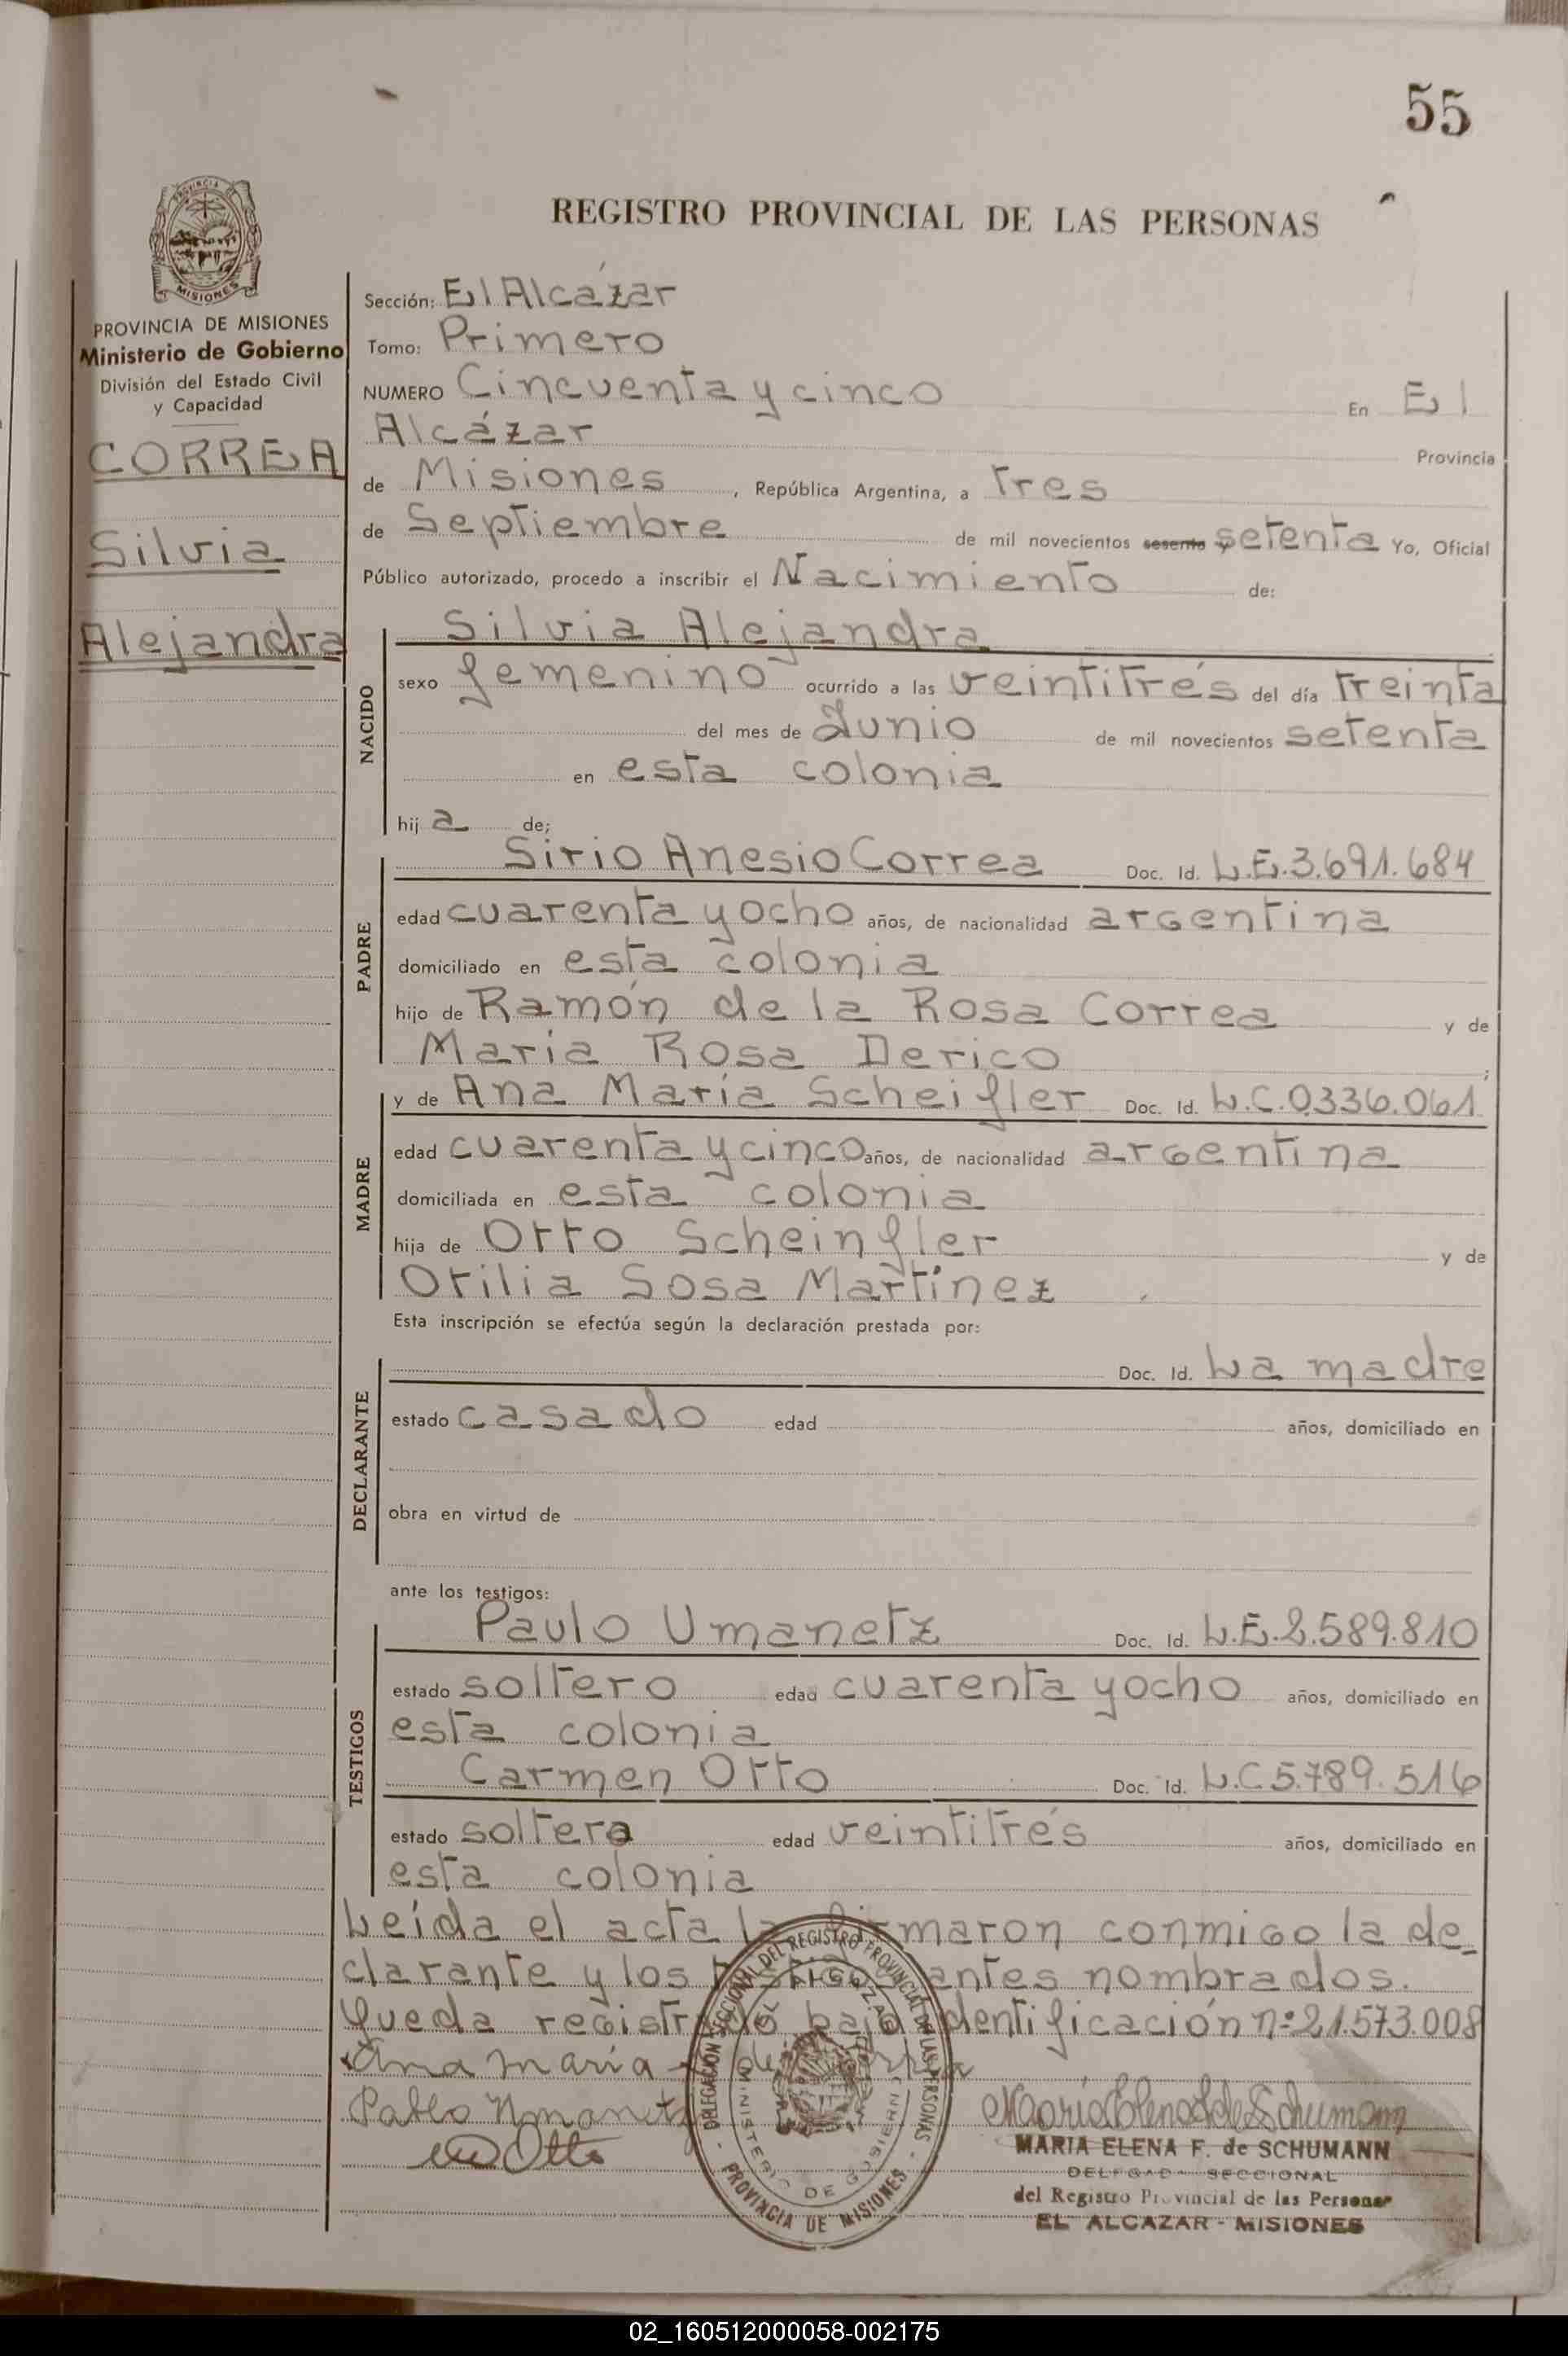 55
REGISTRO PROVINCIAL DE LAS PERSONAS
PROVINCIA DE
MISIONES
PROVINCIA DE MISIONES
Ministerio de Gobierno
División del Estado Civil
y Capacidad
CORREA
Silvia
Alejandra
Sección: El Alcázar
Tomo: Primero
NUMERO Cincuenta y cinco En El
Alcázar Provincia
de Misiones, República Argentina, a Tres
de Septiembre de mil novecientos sesenta y setenta Yo, Oficial
Público autorizado, procedo a inscribir el Nacimiento de:
NACIDO
Silvia Alejandra
sexo femenino ocurrido a las veintitrés del día treinta
del mes de Junio de mil novecientos setenta
en esta colonia
hija de;
PADRE
Sirio Anesio Correa Doc. Id. L.E.3.691.684
edad cuarenta y ocho años, de nacionalidad argentina
domiciliado en esta colonia
hijo de Ramón de la Rosa Correa y de
María Rosa Derico ;
MADRE
y de Ana María Scheifler Doc. Id. L.C.0336.061
edad cuarenta y cinco años, de nacionalidad argentina
domiciliada en esta colonia
hija de Otto Scheinfler y de
Otilia Sosa Martínez
Esta inscripción se efectúa según la declaración prestada por:
DECLARANTE
Doc. Id. La madre
estado casado edad años, domiciliado en
obra en virtud de
ante los testigos:
TESTIGOS
Paulo Umanetz Doc. Id. L.E.2.589.810
estado soltero edad cuarenta y ocho años, domiciliado en
esta colonia
Carmen Otto Doc. Id. L.C 5.789.516
estado soltera edad veintitrés años, domiciliado en
esta colonia
Leída el acta la firmaron conmigo la de-
clarante y los testigos antes nombrados.
Queda registrado bajo identificación nº 21.573.008
Ana María de Correa
Pablo Umanetz
Otto
DELEGACION SECCIONAL DEL REGISTRO PROVINCIAL DE LAS PERSONAS
EL ALCAZAR
MINISTERIO DE GOBIERNO
- PROVINCIA DE MISIONES -
María Elena F de Schumann
MARIA ELENA F. de SCHUMANN
DELEGADA SECCIONAL
del Registro Provincial de las Personas
EL ALCAZAR - MISIONES
02_160512000058-002175